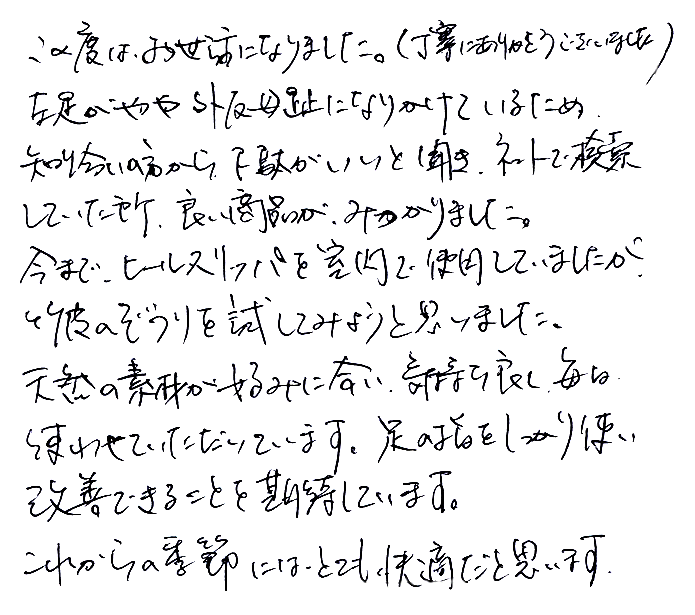 この度は、お世話になりました。(丁寧にありがとうございました)
左足がやや外反母趾になりかけているため、
知り合いの方から、下駄がいいと聞き、ネットで検索
していた所、良い商品が、みつかりました。
今まで、ヒールスリッパを室内で使用していましたが、
竹皮のぞうりを試してみようと思いました。
天然の素材が好みに合い、気持ち良く、毎日
使わせていただいています。足の指をしっかり使い
改善できることを期待しています。
これからの季節には、とても快適だと思います。